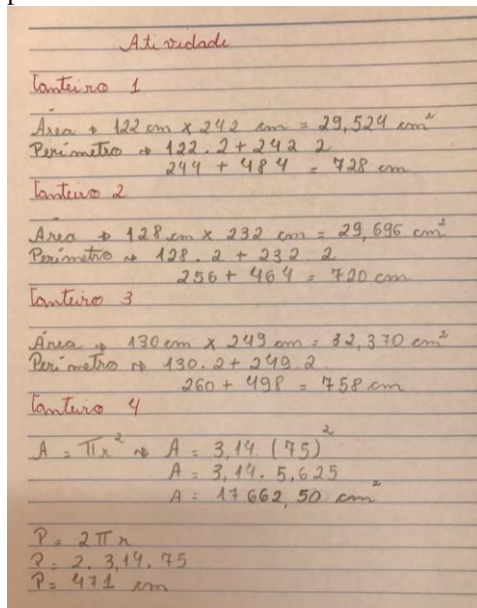 Atividade
Canteiro 1
Área → 122 cm x 242 cm = 29,524 cm²
Perímetro → 122.2 + 242 2
244 + 484 = 728 cm
Canteiro 2
Área → 128 cm x 232 cm = 29,696 cm²
Perímetro → 128.2 + 232.2
256 + 464 = 720 cm
Canteiro 3
Área → 130 cm x 249 cm = 32,370 cm²
Perímetro → 130.2 + 249.2
260 + 498 = 758 cm
Canteiro 4
A = πr² → A = 3,14.(75)²
A = 3,14.5,625
A = 17662,50 cm²
P = 2πr
P = 2.3,14.75
P = 471 cm